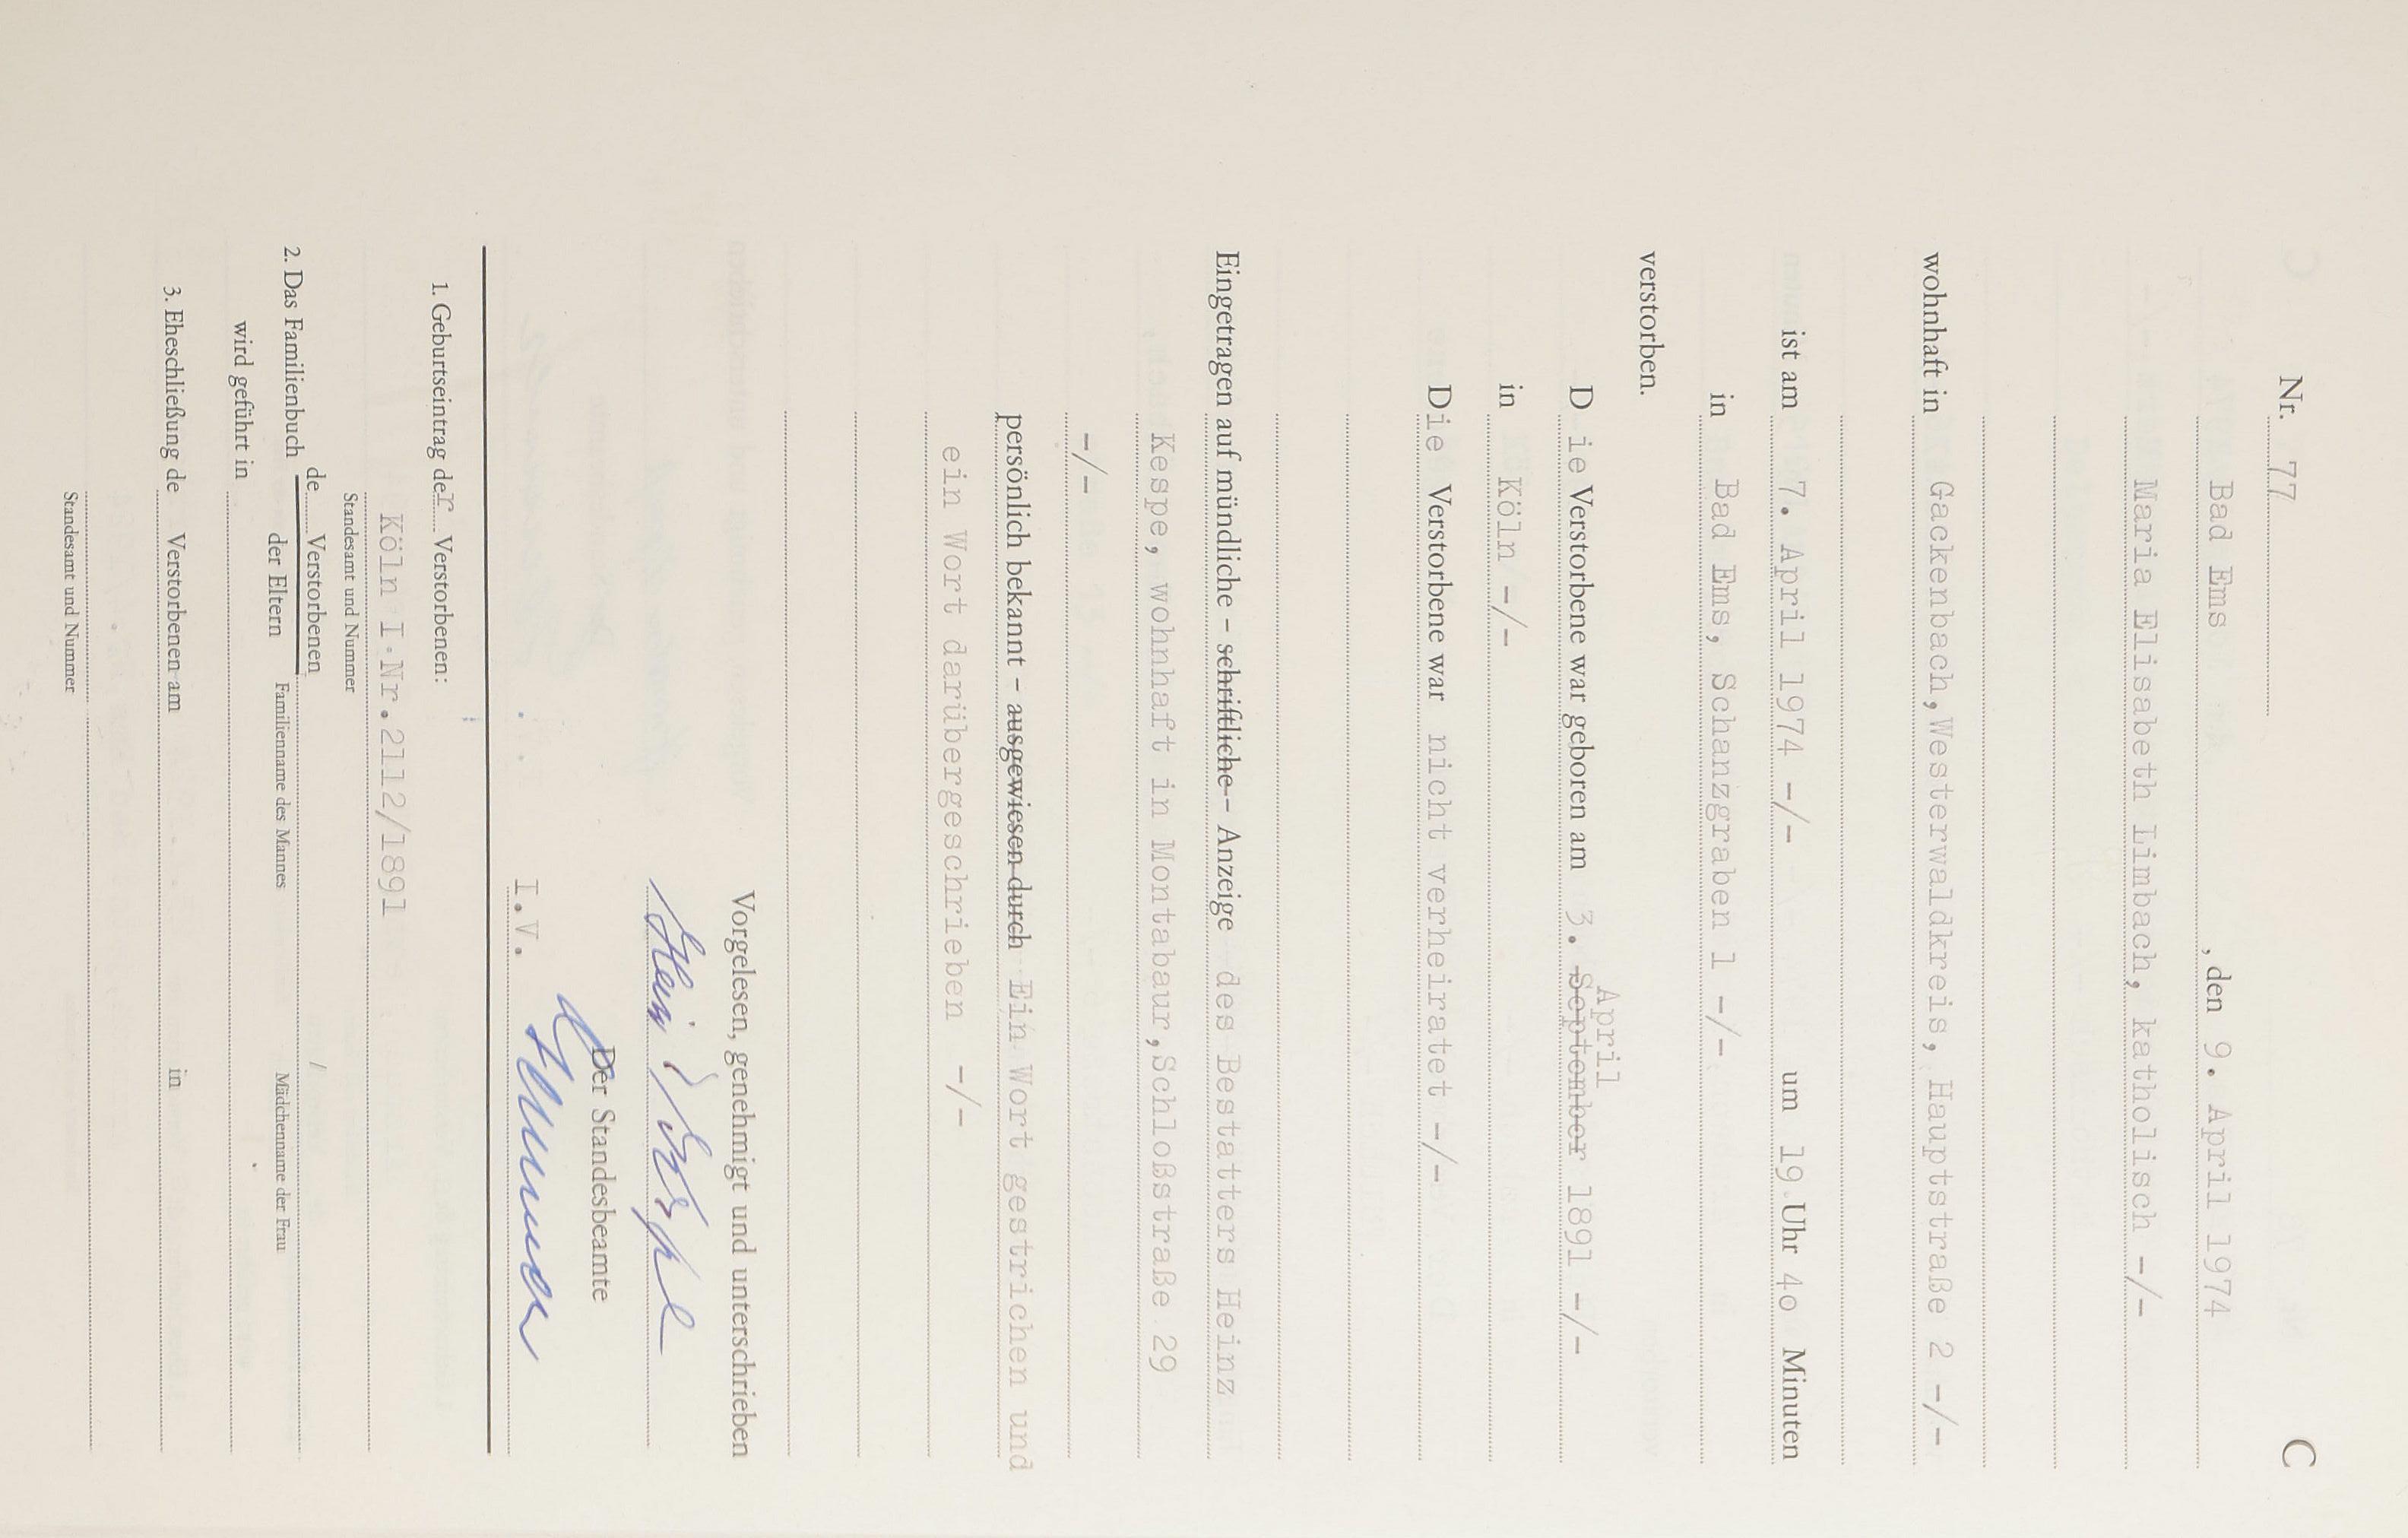 Nr. 77 C
Bad Ems , den 9. April 1974
Maria Elisabeth Limbach, katholisch -/-
wohnhaft in Gackenbach,Westerwaldkreis, Hauptstraße 2 -/-
ist am 7. April 1974 -/- um 19 Uhr 4o Minuten
in Bad Ems, Schanzgraben 1 -/-
verstorben.
April
D ie Verstorbene war geboren am 3. September 1891 -/-
in Köln -/-
Die Verstorbene war nicht verheiratet -/-
Eingetragen auf mündliche – schriftliche – Anzeige des Bestatters Heinz
Kespe, wohnhaft in Montabaur,Schloßstraße 29
-/-
persönlich bekannt – ausgewiesen durch Ein Wort gestrichen und
ein Wort darübergeschrieben -/-
Vorgelesen, genehmigt und unterschrieben
Der Standesbeamte
I.V.
1. Geburtseintrag der Verstorbenen:
Köln I Nr.2112/1891
Standesamt und Nummer
de Verstorbenen /
2. Das Familienbuch
der Eltern Familienname des Mannes Mädchenname der Frau
wird geführt in
3. Eheschließung de Verstorbenen am in
Standesamt und Nummer